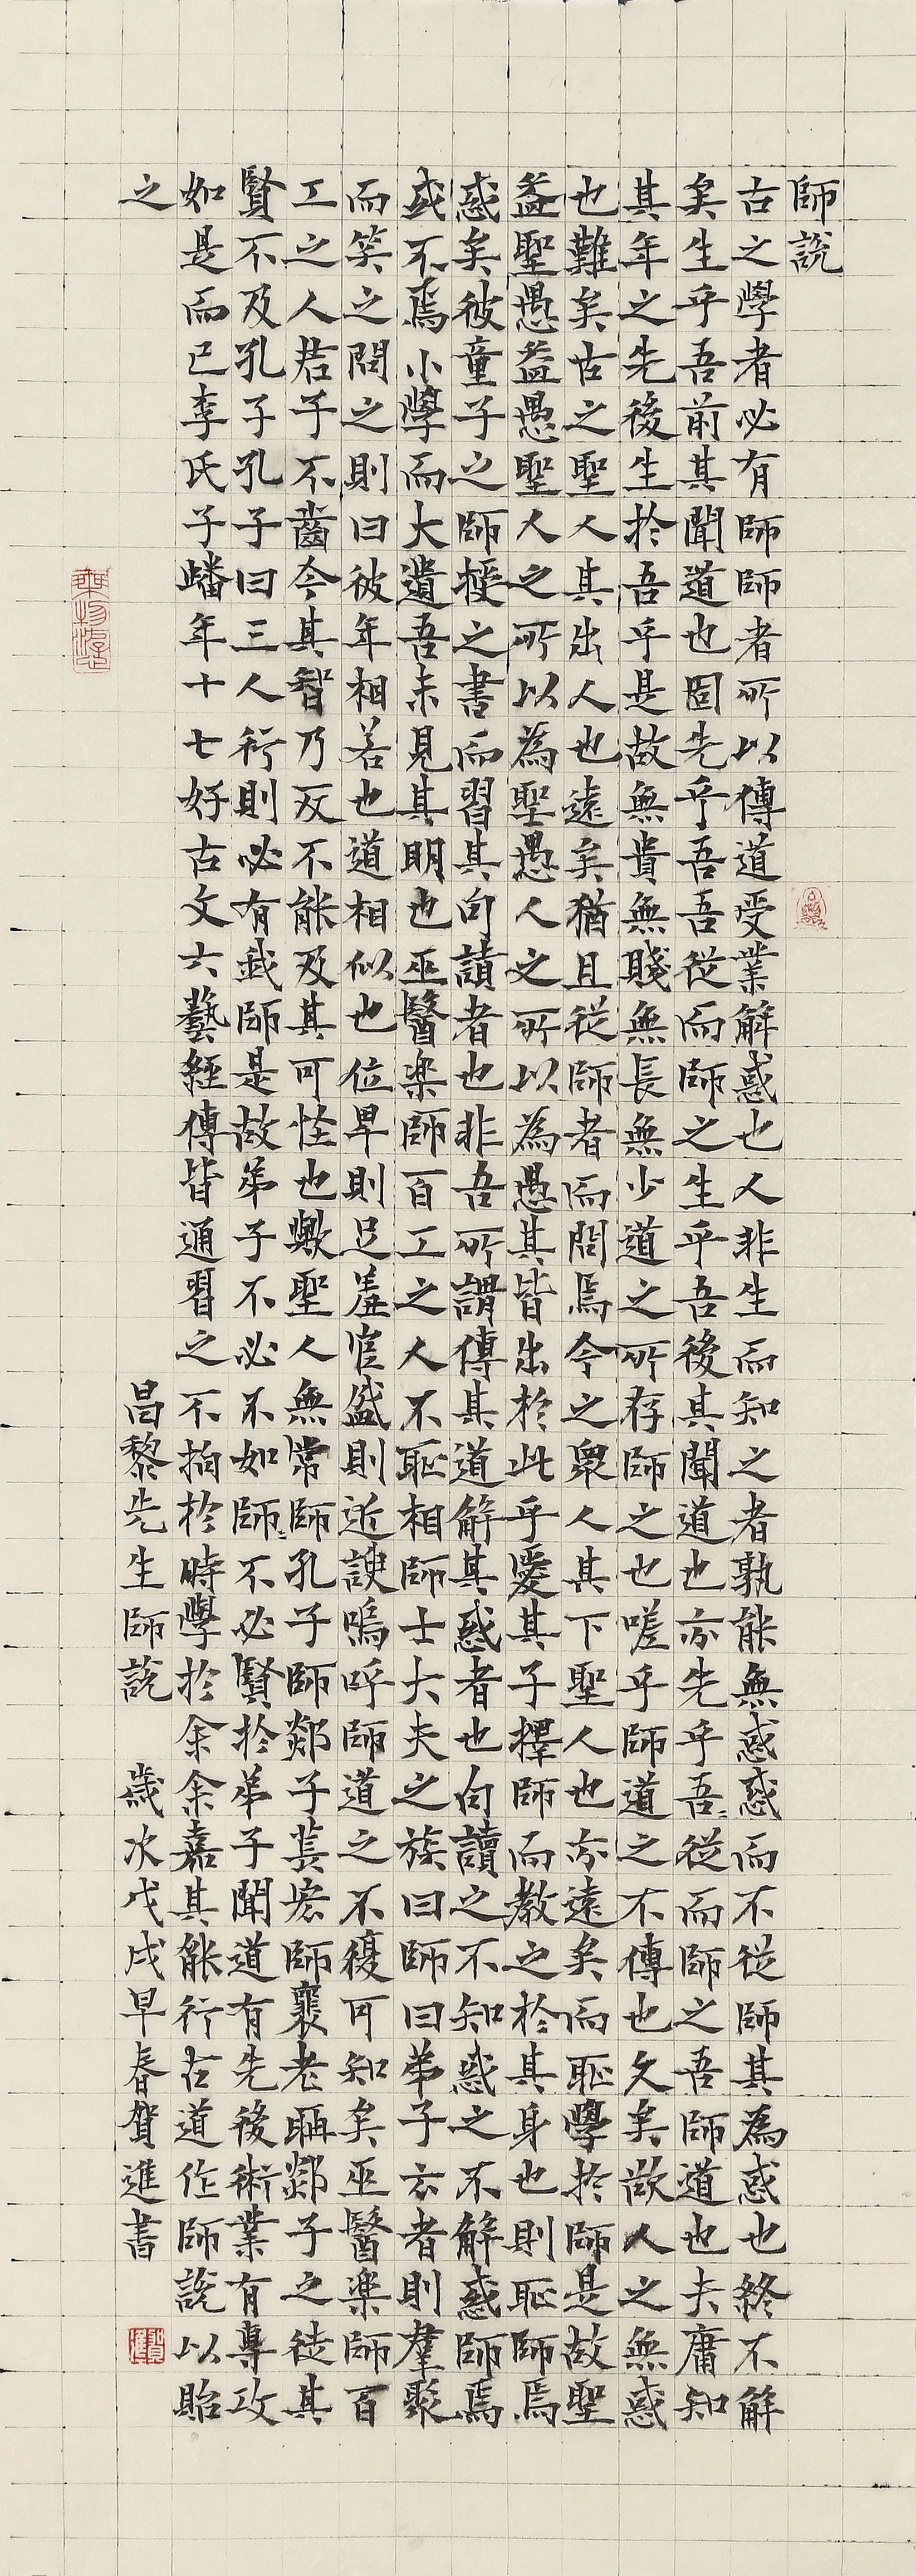 師說
古之學者必有師師者所以傳道受業解惑也人非生而知之者孰能無惑惑而不從師其為惑也終不解
矣生乎吾前其聞道也固先乎吾吾從而師之生乎吾後其聞道也亦先乎吾〻從而師之吾師道也夫庸知
其年之先後生於吾乎是故無貴無賤無長無少道之所存師之也嗟乎師道之不傳也久矣欲人之無惑
也難矣古之聖人其出人也遠矣猶且從師者而問焉今之眾人其下聖人也亦遠矣而恥學於師是故聖
益聖愚益愚聖人之所以為聖愚人之所以為愚其皆出於此乎愛其子擇師而教之於其身也則恥師焉
惑矣彼童子之師授之書而習其句讀者也非吾所謂傳其道解其惑者也句讀之不知惑之不解惑師焉
或不焉小學而大遺吾未見其明也巫醫楽師百工之人不恥相師士大夫之族曰師曰弟子云者則羣聚
而笑之問之則曰彼年相若也道相似也位卑則足羞官盛則近諛嗚呼師道之不復可知矣巫醫楽師百
工之人君子不齒今其智乃反不能及其可怪也歟聖人無常師孔子師郯子萇宏師襄老聃郯子之徒其
賢不及孔子孔子曰三人行則必有我師是故弟子不必不如師〻不必賢於弟子聞道有先後術業有專攻
如是而已李氏子蟠年十七好古文六藝經傳皆通習之不拘於時學於余余嘉其能行古道作師說以貽
之 昌黎先生師說 歲次戊戌早春賀進書
乘物游心